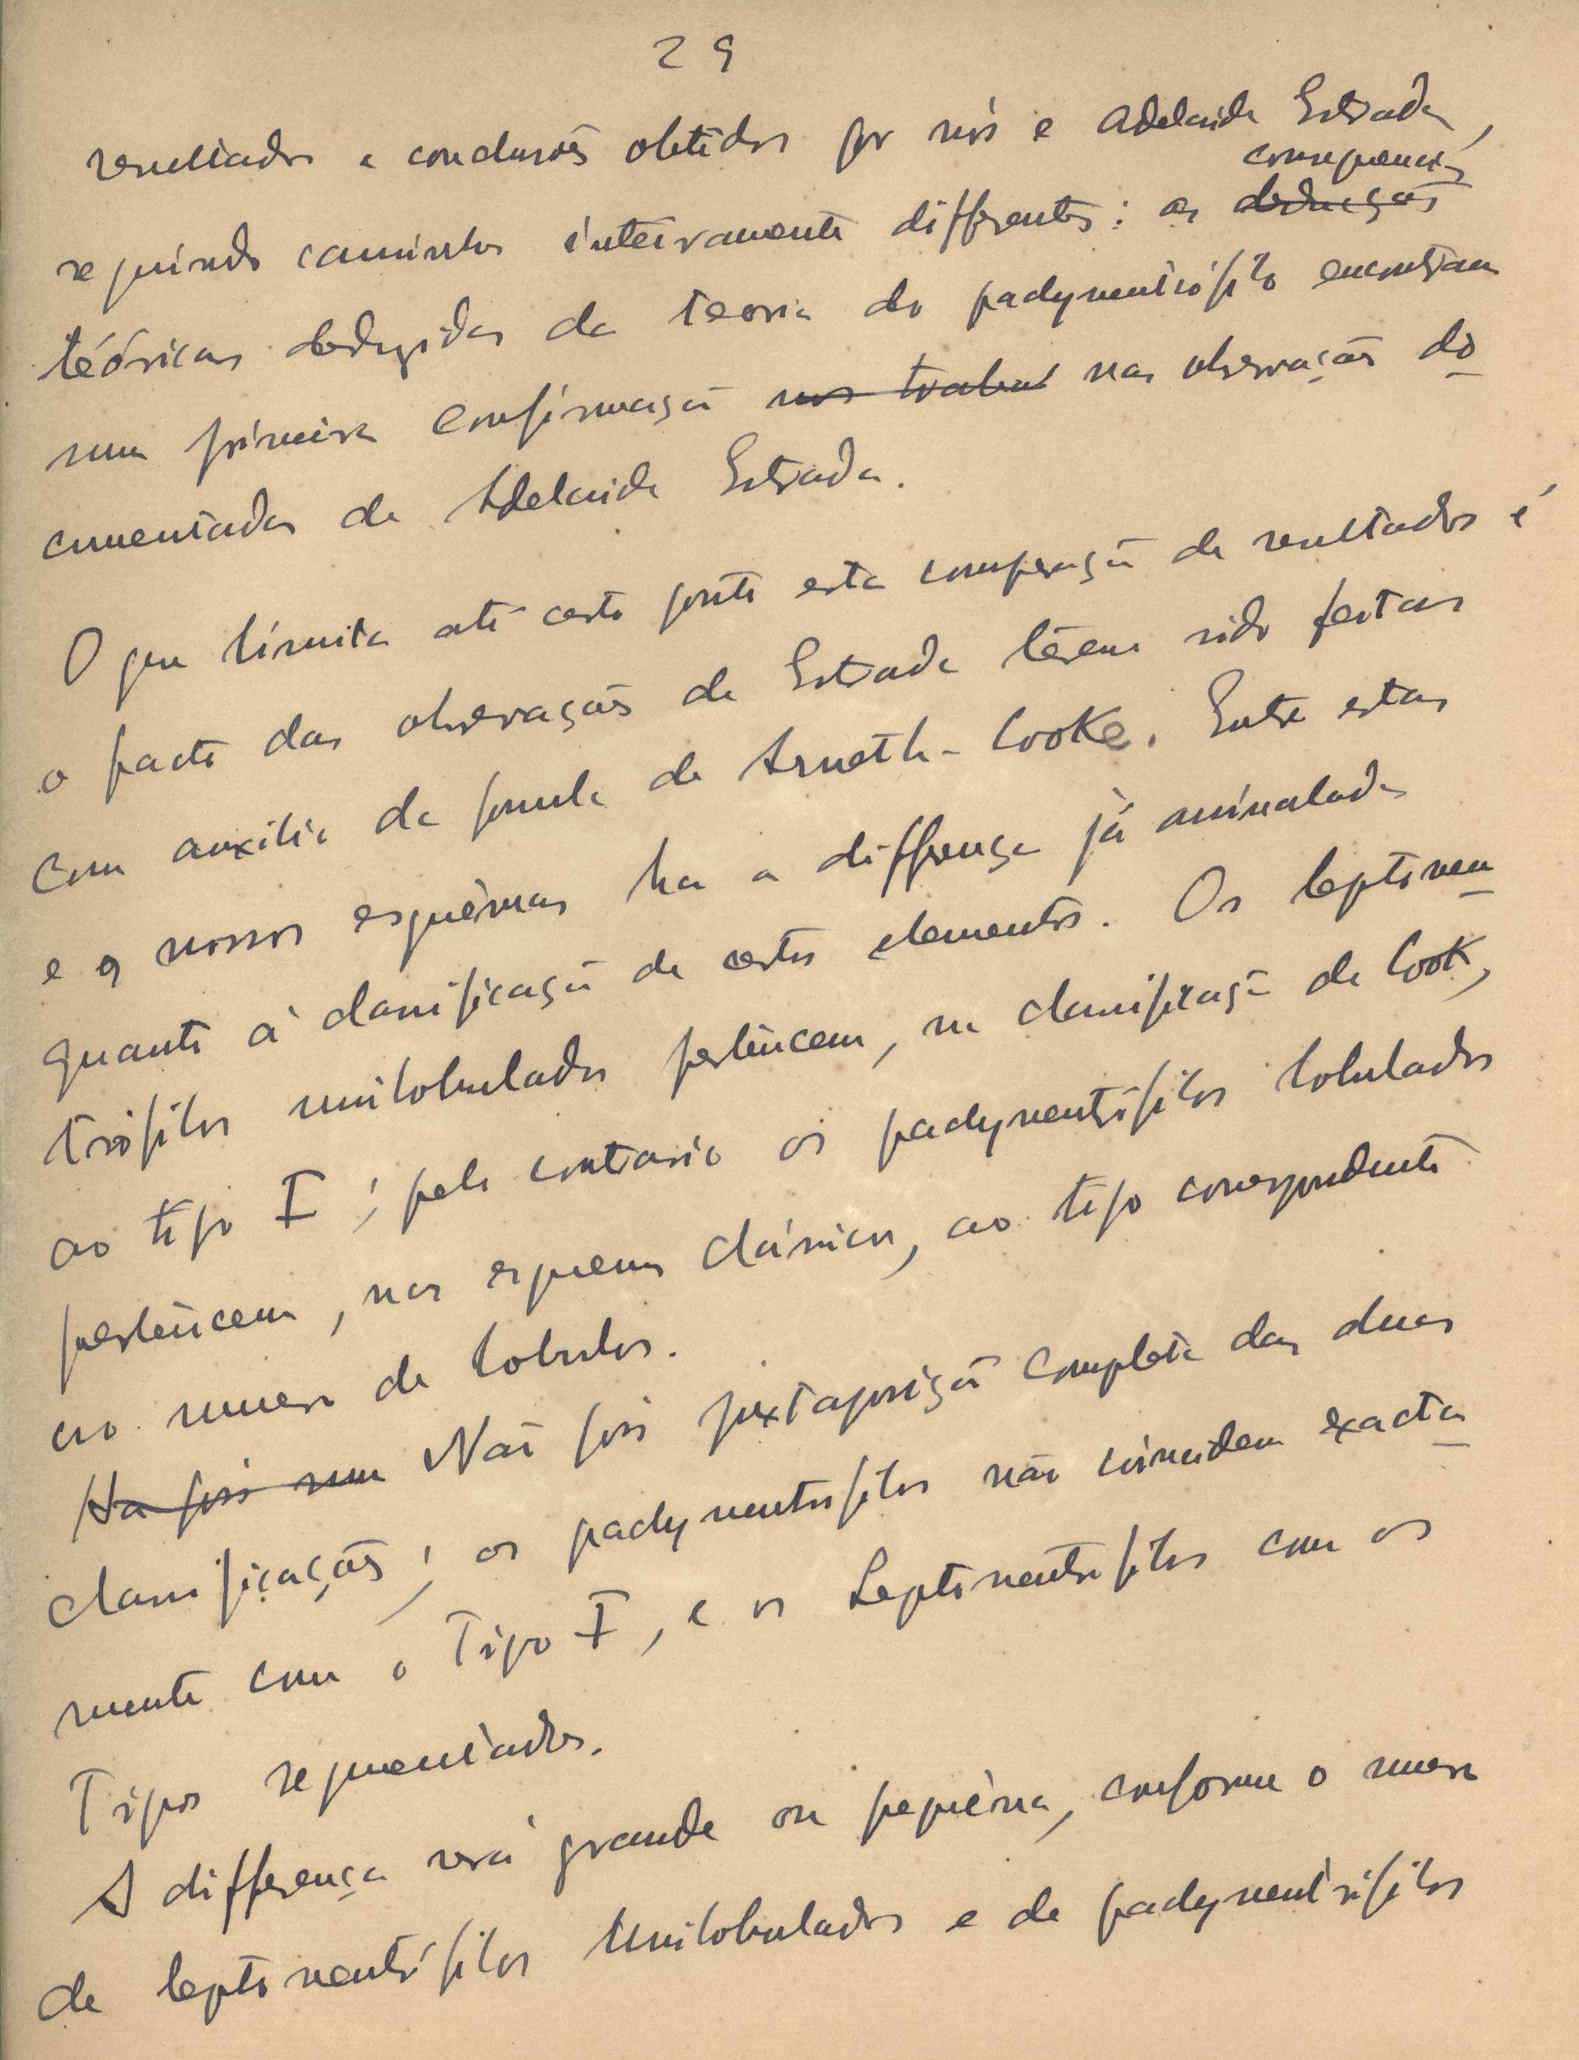 29
resultados e conclusões obtidos por nós e Adelaide Estrada,
consequencias
seguindo caminhos inteiramente differentes: as deducções
teóricas deduzidas da teoria do padyneutrófilo encontram
uma primeira confirmação nos trabal nas observações do
cumentadas de Adelaide Estrada.
O que limita até certo ponto esta comparação de resultados é
o facto das observações de Estrada têrem sido feitas
com auxilio da formula de Arneth-Cooke. Entre estas
e os nossos esquêmas ha a differença já assinalada
quanto á classificação de certos elementos. Os leptoneu
trófilos unilobulados pertencem, na classificação de Cook,
ao tipo I; pelo contrario os padyneutrófilos lobulados
pertencem, nos esquemas clássicos, ao tipo correspondente
ao numero de lobulos.
Ha pois uma Não pois juxtaposição completa das duas
classificações; os padyneutrofilos não coincidem exacta
mente com o Tipo I, e os Leptoneutrofilos com os
Tipos segmentados.
A differença será grande ou pequêna, conforme o numero
de leptoneutrófilos Unilobulados e de padyneutrófilos